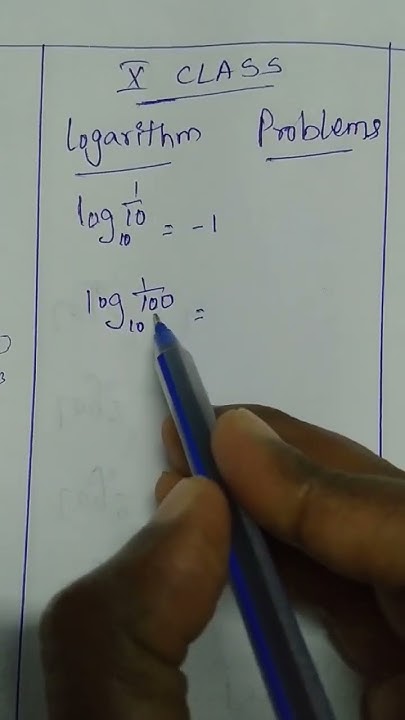 X CLASS
Logarithm Problems
log₁₀ 1/10 = -1
log₁₀ 1/100 =